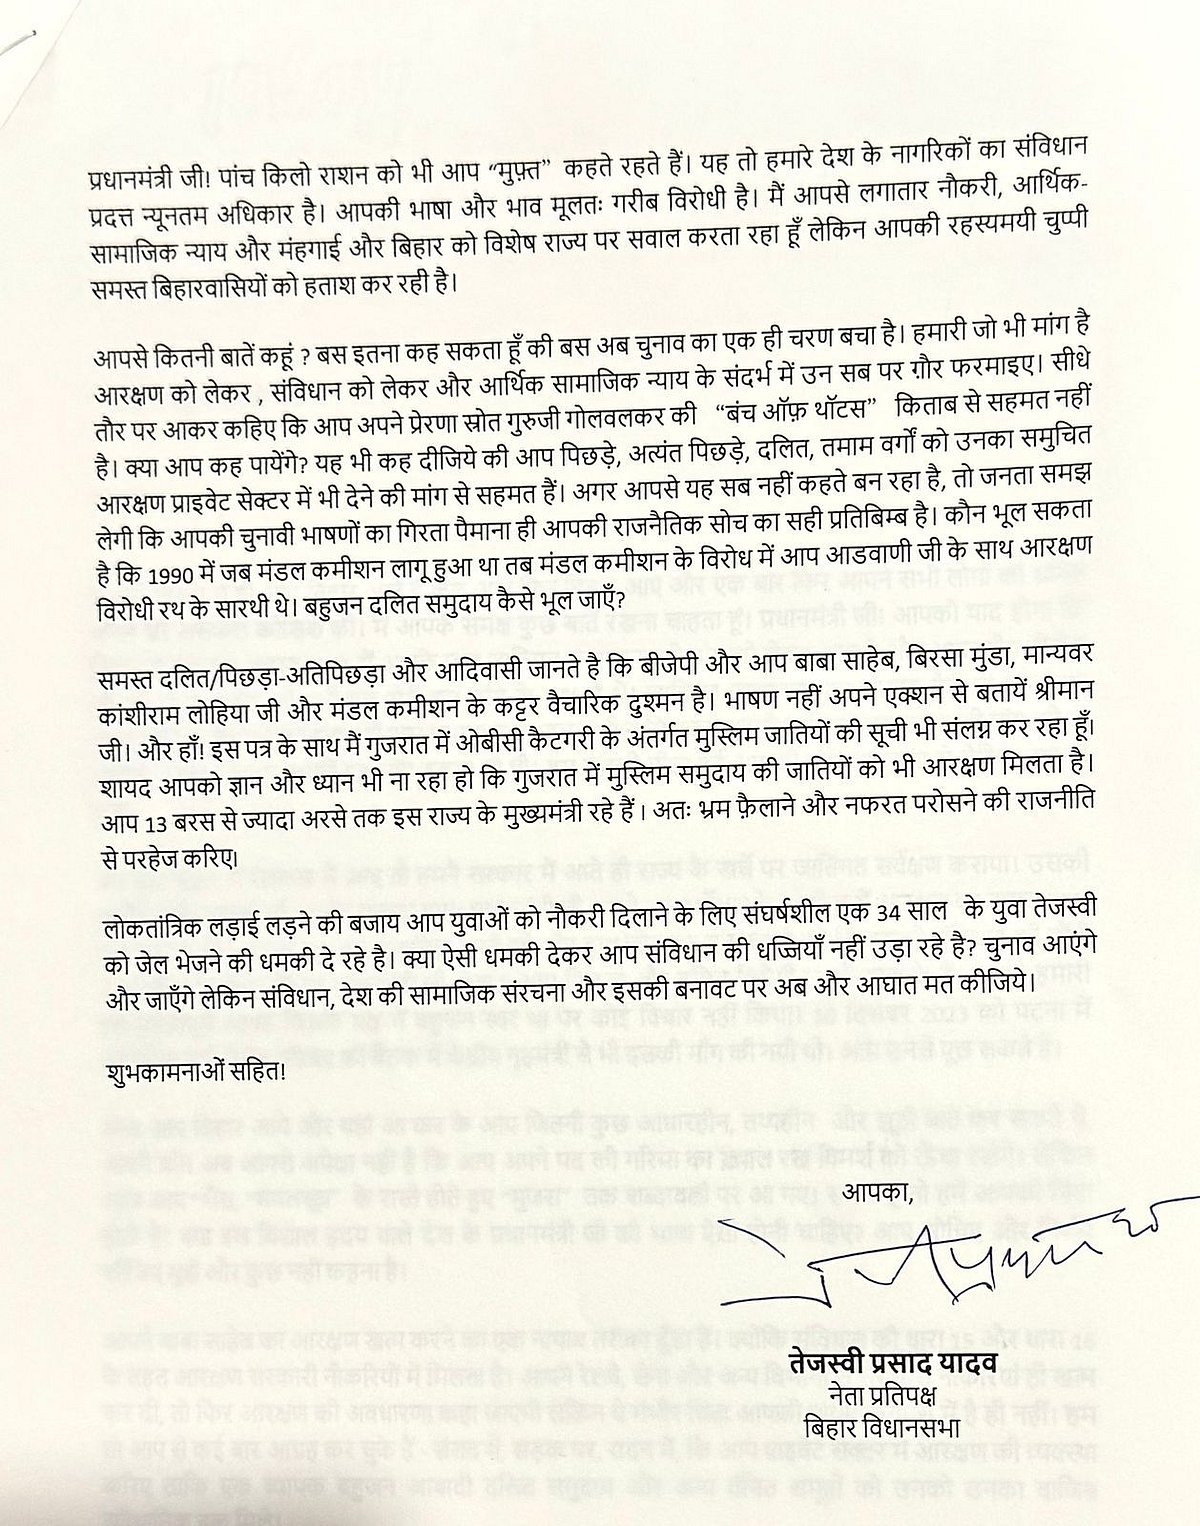 प्रधानमंत्री जी! पांच किलो राशन को भी आप “मुफ़्त” कहते रहते हैं। यह तो हमारे देश के नागरिकों का संविधान
प्रदत्त न्यूनतम अधिकार है। आपकी भाषा और भाव मूलतः गरीब विरोधी है। मैं आपसे लगातार नौकरी, आर्थिक-
सामाजिक न्याय और मंहगाई और बिहार को विशेष राज्य पर सवाल करता रहा हूँ लेकिन आपकी रहस्यमयी चुप्पी
समस्त बिहारवासियों को हताश कर रही है।
आपसे कितनी बातें कहूं ? बस इतना कह सकता हूँ की बस अब चुनाव का एक ही चरण बचा है। हमारी जो भी मांग है
आरक्षण को लेकर , संविधान को लेकर और आर्थिक सामाजिक न्याय के संदर्भ में उन सब पर ग़ौर फरमाइए। सीधे
तौर पर आकर कहिए कि आप अपने प्रेरणा स्रोत गुरुजी गोलवलकर की “बंच ऑफ़ थॉटस” किताब से सहमत नहीं
है। क्या आप कह पायेंगे? यह भी कह दीजिये की आप पिछड़े, अत्यंत पिछड़े, दलित, तमाम वर्गों को उनका समुचित
आरक्षण प्राइवेट सेक्टर में भी देने की मांग से सहमत हैं। अगर आपसे यह सब नहीं कहते बन रहा है, तो जनता समझ
लेगी कि आपकी चुनावी भाषणों का गिरता पैमाना ही आपकी राजनैतिक सोच का सही प्रतिबिम्ब है। कौन भूल सकता
है कि 1990 में जब मंडल कमीशन लागू हुआ था तब मंडल कमीशन के विरोध में आप आडवाणी जी के साथ आरक्षण
विरोधी रथ के सारथी थे। बहुजन दलित समुदाय कैसे भूल जाएँ?
समस्त दलित/पिछड़ा-अतिपिछड़ा और आदिवासी जानते है कि बीजेपी और आप बाबा साहेब, बिरसा मुंडा, मान्यवर
कांशीराम लोहिया जी और मंडल कमीशन के कट्टर वैचारिक दुश्मन है। भाषण नहीं अपने एक्शन से बतायें श्रीमान
जी। और हाँ! इस पत्र के साथ मैं गुजरात में ओबीसी कैटगरी के अंतर्गत मुस्लिम जातियों की सूची भी संलग्न कर रहा हूँ।
शायद आपको ज्ञान और ध्यान भी ना रहा हो कि गुजरात में मुस्लिम समुदाय की जातियों को भी आरक्षण मिलता है।
आप 13 बरस से ज्यादा अरसे तक इस राज्य के मुख्यमंत्री रहे हैं । अतः भ्रम फ़ैलाने और नफरत परोसने की राजनीति
से परहेज करिए।
लोकतांत्रिक लड़ाई लड़ने की बजाय आप युवाओं को नौकरी दिलाने के लिए संघर्षशील एक 34 साल के युवा तेजस्वी
को जेल भेजने की धमकी दे रहे है। क्या ऐसी धमकी देकर आप संविधान की धज्जियाँ नहीं उड़ा रहे है? चुनाव आएंगे
और जाएँगे लेकिन संविधान, देश की सामाजिक संरचना और इसकी बनावट पर अब और आघात मत कीजिये।
शुभकामनाओं सहित!
आपका,
तेजस्वी प्रसाद यादव
नेता प्रतिपक्ष
बिहार विधानसभा